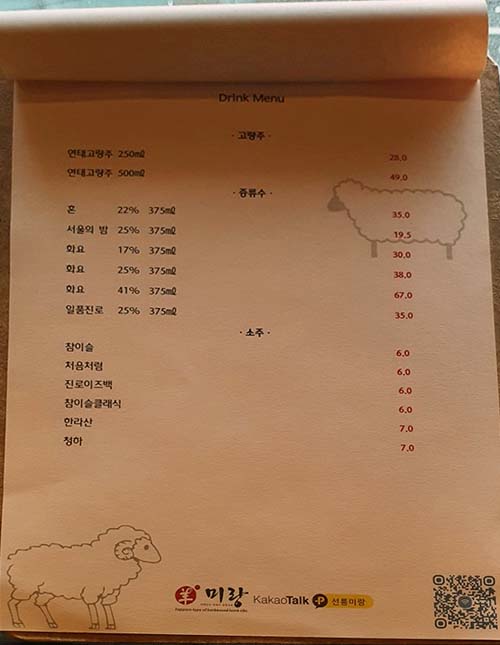 Drink Menu
· 고량주 ·
연태고량주 250㎖ 28.0
연태고량주 500㎖ 49.0
· 증류수 ·
혼 22% 375㎖ 35.0
서울의 밤 25% 375㎖ 19.5
화요 17% 375㎖ 30.0
화요 25% 375㎖ 38.0
화요 41% 375㎖ 67.0
일품진로 25% 375㎖ 35.0
· 소주 ·
참이슬 6.0
처음처럼 6.0
진로이즈백 6.0
참이슬클래식 6.0
한라산 7.0
청하 7.0
羊 미랑 KakaoTalk 선릉미랑